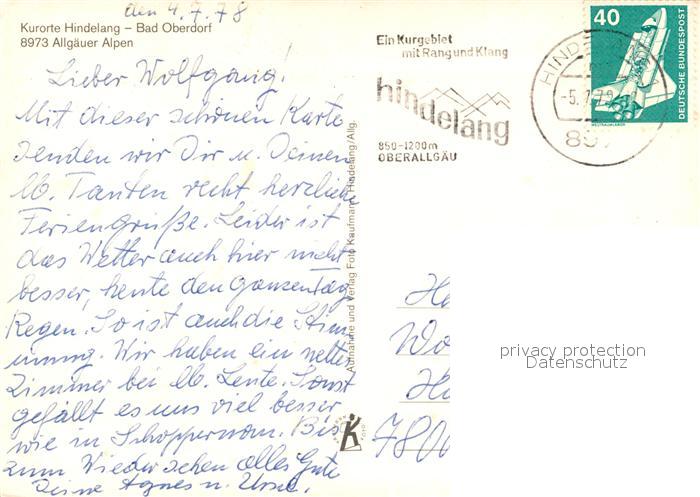 den 4.7.78
Kurorte Hindelang – Bad Oberdorf
8973 Allgäuer Alpen
Lieber Wolfgang!
Mit dieser schönen Karte
senden wir Dir u. Deinen
lb. Tanten recht herzliche
Feriengrüße. Leider ist
das Wetter auch hier nicht
besser, heute den ganzen Tag
Regen. So ist auch die Stim
mung. Wir haben ein nettes
Zimmer bei lb. Leute. Sonst
gefällt es uns viel besser
wie in Schoppernau. Bis
zum Wiedersehen alles Gute
Deine Agnes u. Ursel.
Aufnahme und Verlag Foto Kaufmann, Hindelang/Allg.
Ein Kurgebiet
mit Rang und Klang
hindelang
850-1200m
OBERALLGÄU
-5.7.78
897
40
DEUTSCHE BUNDESPOST
WELTRAUMLABOR
Ha
Wo
Ha
7800
privacy protection
Datenschutz